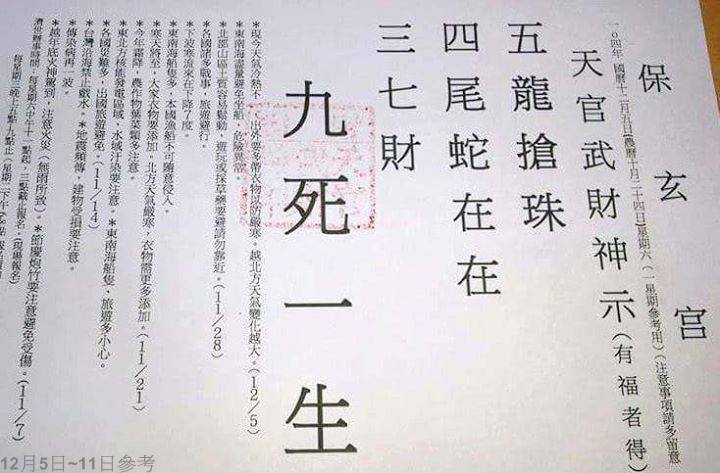 保玄宮
一o四年 國曆十二月五日(農曆十月二十四日)星期六(一星期參考用)(注意事項請多留意
天官武財神示(有福者得)
五龍搶珠
四尾蛇在在
三七財
九死一生
*現今天氣冷熱不一出外要多帶衣物以防嚴寒。越北方天氣變化越大。(12/5)
*東南海盡量避免坐船,危險異常。
*北部山區土質容易鬆動,遊玩或採草藥要避請勿靠近。(11/28)
*各國諸多戰事,旅遊避行。
*下波寒流來在下,降7度。
*東南海船隻多,本國漁船不可隨意侵入。
*寒天將至,大家衣物要添加。北方天氣嚴寒,衣物需更多添加。(11/21)
*今年霜降,農作物葉菜類多注意。
*東北方核能發電區域,水域汙染要注意。*東南海船隻,旅遊多小心。
*各國災難多,出國旅遊避免。(11/14)
*台灣沿海禁止戲水。*地震頻傳,建物受損要注意。
*傳染病再一波。
*越年底火神駕到,注意火災(無雨所致)。*節慶炮竹要注意避免受傷。(11/7)
濟世辦事時間:每星期六中午十二點起,三點截止報名。(現場報名)
每星期三晚上六點~九點止(星期二下午
12月5日~11日參考